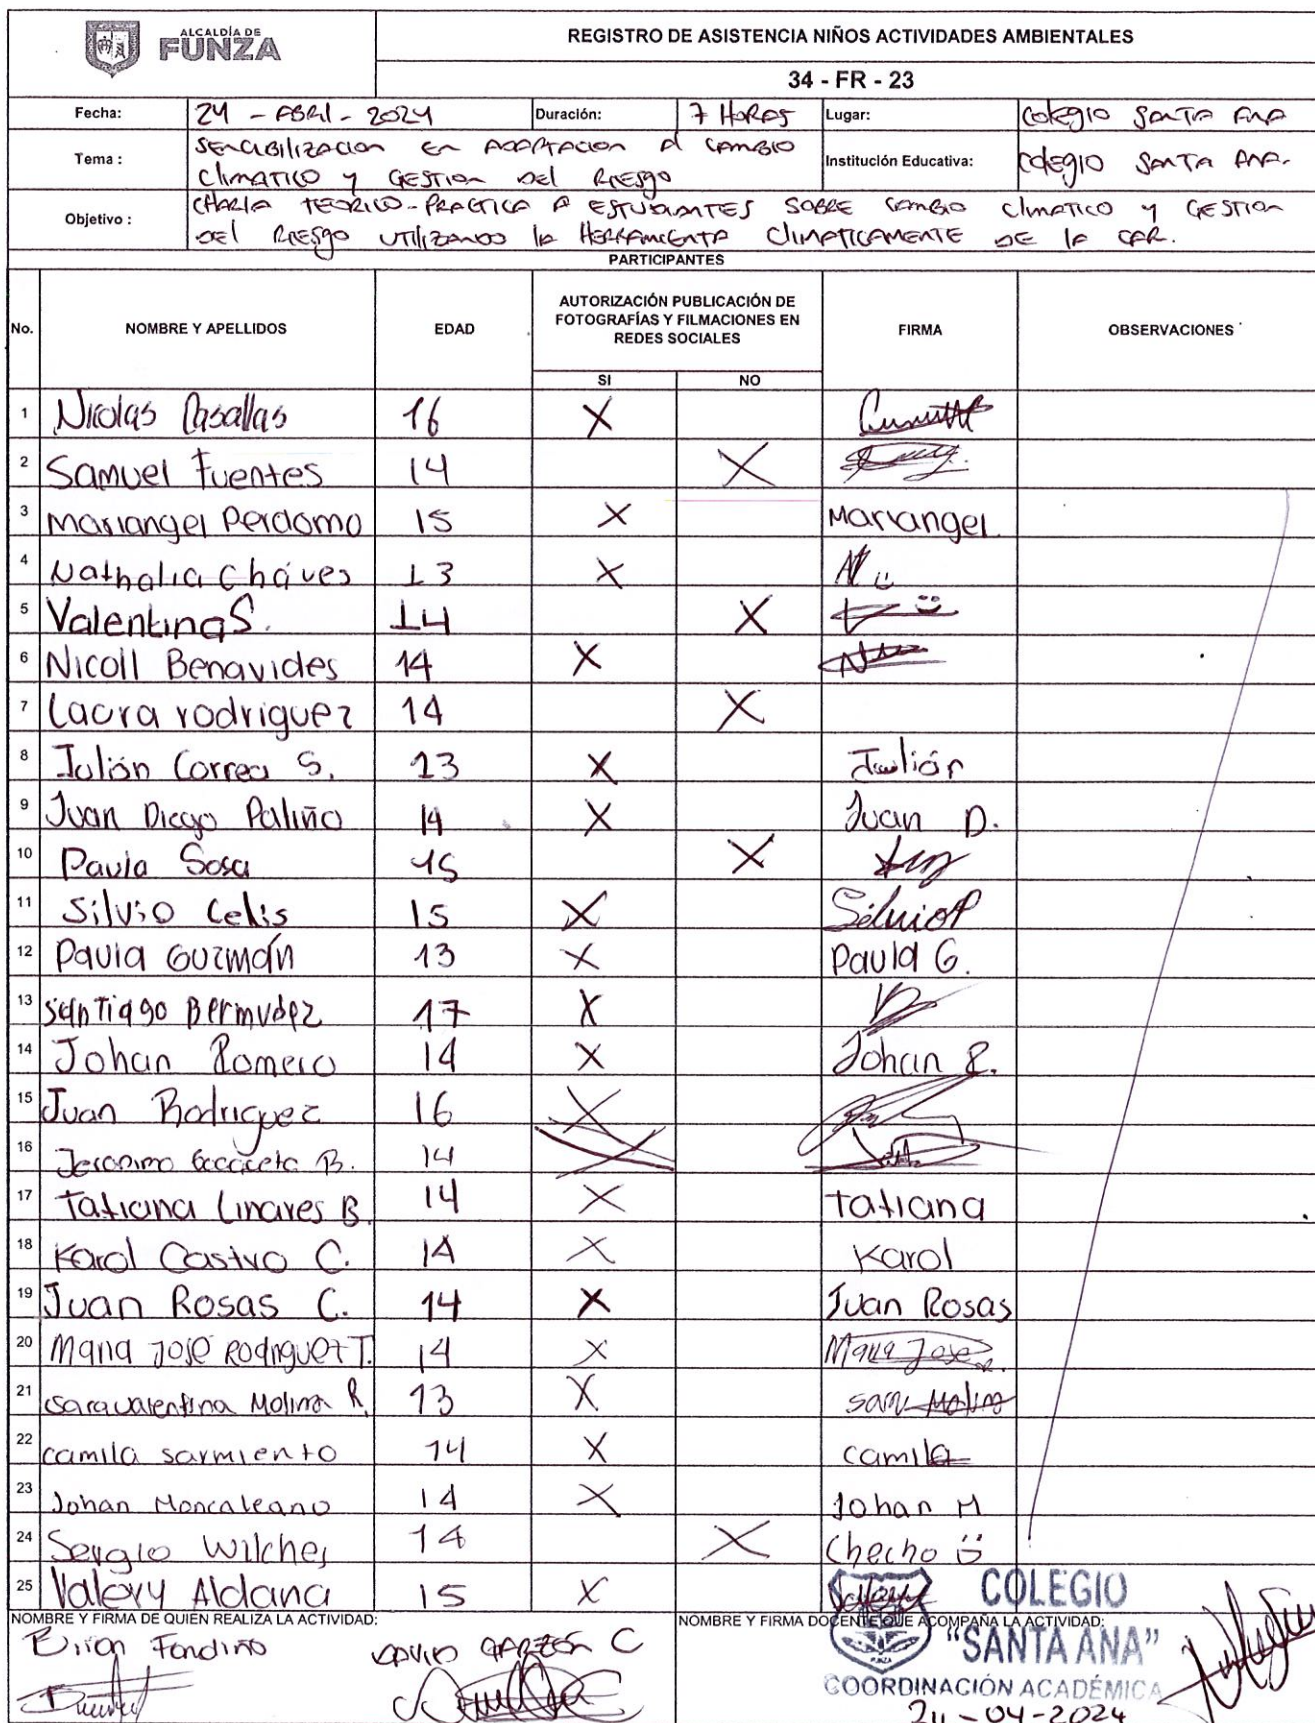 ALCALDÍA DE
FUNZA
REGISTRO DE ASISTENCIA NIÑOS ACTIVIDADES AMBIENTALES
34 - FR - 23
Fecha: 24 - ABRIL - 2024 Duración: 7 HORAS Lugar: Colegio SANTA ANA
Tema : SENCIBILIZACION EN ADAPTACION Al CAMBIO
CLIMATICO y GESTION DEL RIESGO
Institución Educativa: Colegio SANTA ANA.
Objetivo : CHARLA TEORICO-PRACTICA A ESTUDIANTES SOBRE CAMBIO CLIMATICO y GESTION
DEL RIESGO UTILIZANDO la HERRAMIENTA CLIMATICAMENTE DE LA CAR.
PARTICIPANTES
No. NOMBRE Y APELLIDOS EDAD AUTORIZACIÓN PUBLICACIÓN DE FOTOGRAFÍAS Y FILMACIONES EN REDES SOCIALES FIRMA OBSERVACIONES
SI NO
1 Nicolas Casallas 16 X
2 Samuel Fuentes 14 X
3 Mariangel Perdomo 15 X Mariangel
4 Nathalia Cháves 13 X
5 Valentina S. 14 X
6 Nicoll Benavides 14 X
7 Laura rodriguez 14 X
8 Julián Correa S. 13 X Julián
9 Juan Diego Patiño 14 X Juan D.
10 Paula Sosa 15 X
11 Silvio Celis 15 X Silvio
12 Paula Guzmán 13 X Paula G.
13 Santiago Bermudez 17 X
14 Johan Romero 14 X Johan R.
15 Juan Rodriguez 16 X
16 Jeronimo B. 14 X
17 Tatiana Linares B. 14 X Tatiana
18 Karol Castro C. 14 X Karol
19 Juan Rosas C. 14 X Juan Rosas
20 Maria José Rodriguez T. 14 X Maria Jose R.
21 Sara valentina Molina R. 13 X Sara Molina
22 camila sarmiento 14 X camila
23 Johan Moncaleano 14 X Johan M
24 Sergio Wilches 14 X Checho
25 Valery Aldana 15 X Valery
NOMBRE Y FIRMA DE QUIEN REALIZA LA ACTIVIDAD: NOMBRE Y FIRMA DOCENTE QUE ACOMPAÑA LA ACTIVIDAD:
Brian Fandiño DAVID GARZÓN C
COLEGIO
"SANTA ANA"
FUNZA
COORDINACIÓN ACADÉMICA
24-04-2024